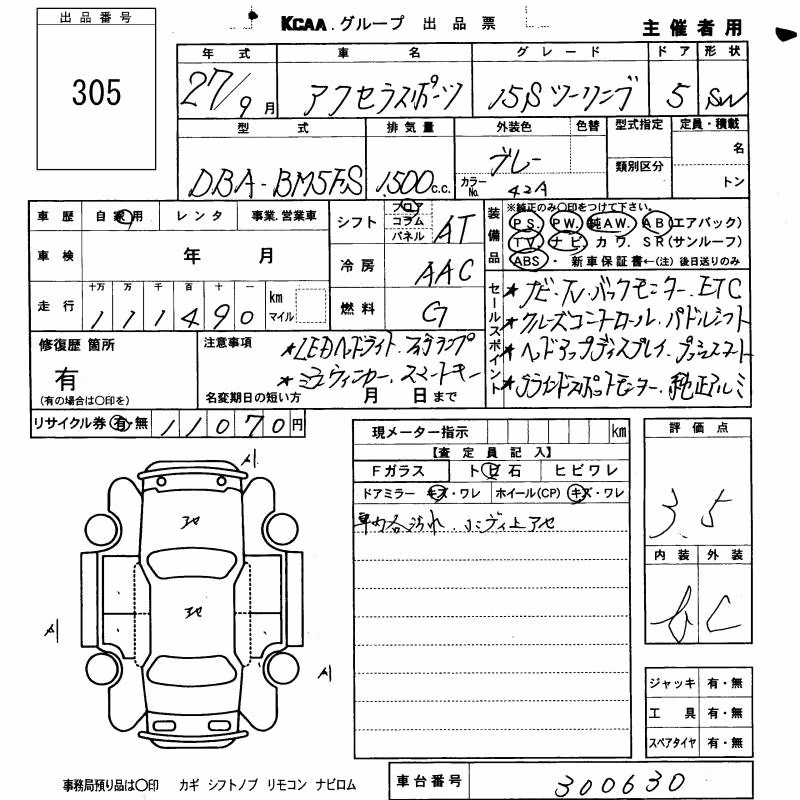 出品番号
305
KCAA.グループ 出品票
主催者用
年式 車名 グレード ドア 形状
27/9月 アクセラスポーツ 15Sツーリング 5 SW
型式 排気量 外装色 色替 型式指定 定員・積載
名
類別区分
トン
DBA-BM5FS 1,500c.c. グレー
カラーNo. 42A
車歴 自家用 レンタ 事業.営業車
シフト フロア コラム パネル AT
装備品 ※純正のみ〇印をつけて下さい。
PS. PW. 純AW. AB(エアバック)
TV. ナビ. カワ. SR(サンルーフ)
ABS・ 新車保証書←(注) 後日送りのみ
車検 年 月
冷房 AAC
走行 十万 万 千 百 十 一
111490 km マイル
燃料 G
セールスポイント
★ナビ・TV・バックモニター. ETC
★クルーズコントロール. パドルシフト
★ヘッドアップディスプレイ. プッシュスタート
★グランドスポットモニター. 純正アルミ
修復歴 箇所
有
(有の場合は〇印を)
注意事項
★LEDヘッドライト. フォグランプ
★ミラーウィンカー. スマートキー
名変期日の短い方 月 日まで
リサイクル券 有・無 11070円
現メーター指示 km
【査定員記入】
Fガラス ト ビ 石 ヒビワレ
ドアミラー キズ・ワレ ホイール(CP) キズ・ワレ
車内各汚れ. ボディ上アセ
評価点
3.5
内装 外装
b C
A1
アセ
アセ
A1
A1
ジャッキ 有・無
工具 有・無
スペアタイヤ 有・無
事務局預り品は〇印 カギ シフトノブ リモコン ナビロム
車台番号 300630